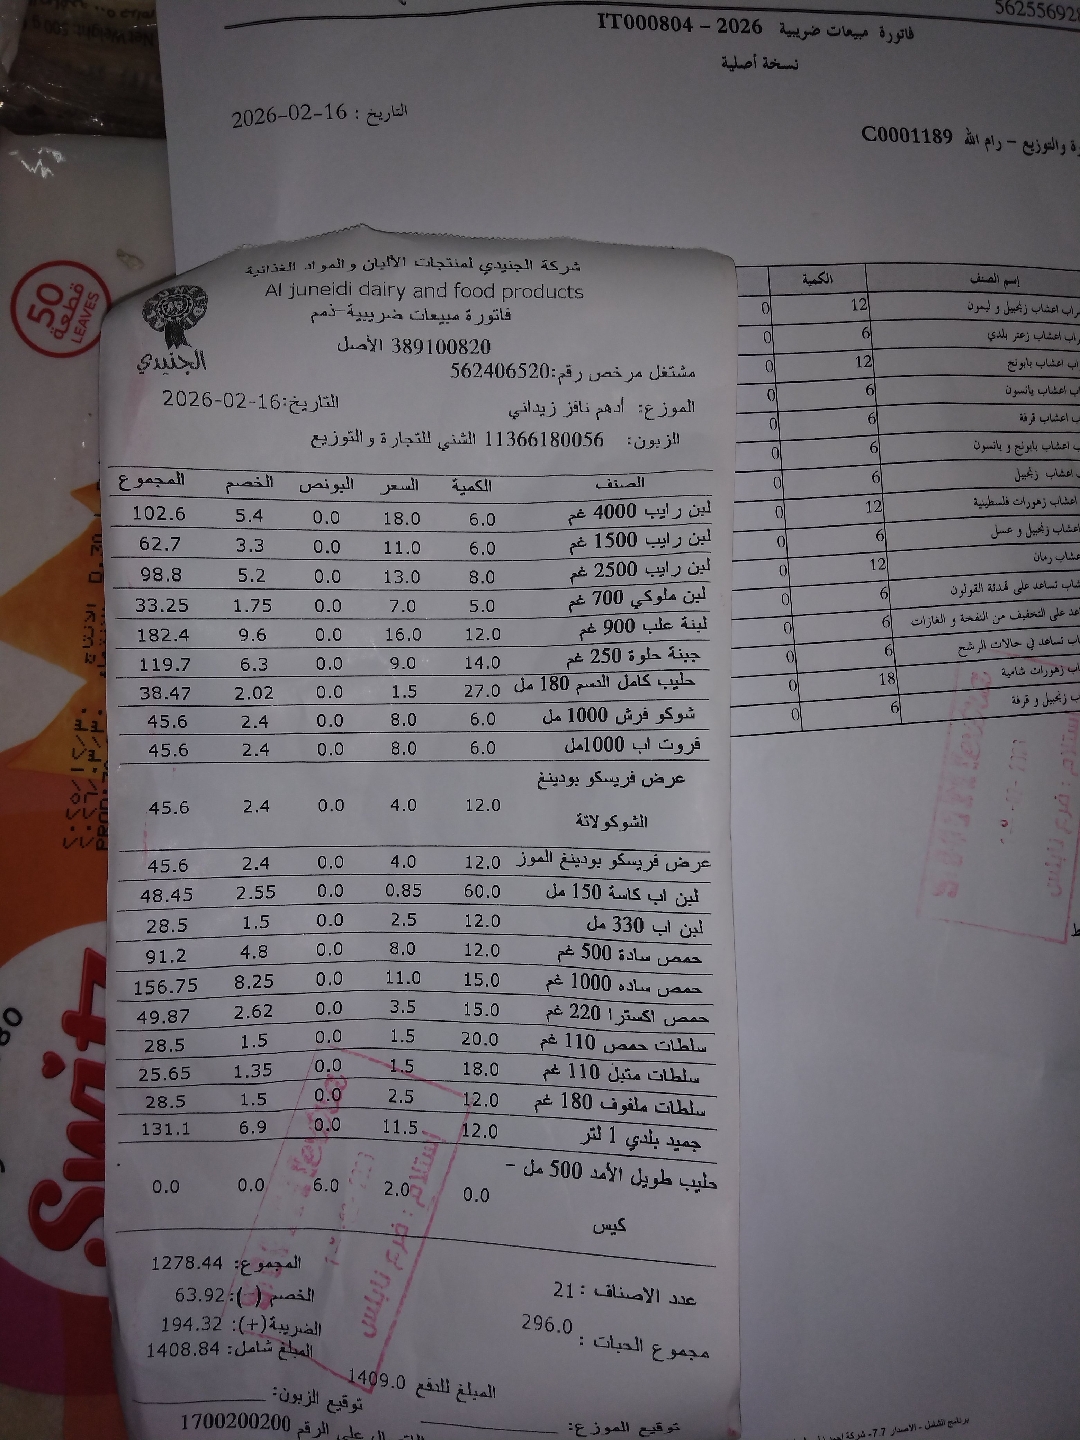 فاتورة مبيعات ضريبية 2026 - IT000804
نسخة أصلية
التاريخ : 2026-02-16
والتوزيع - رام الله C0001189
إسم الصنف الكمية
اعشاب زنجبيل و ليمون 12 0
اعشاب زعتر بلدي 6 0
اعشاب بابونج 12 0
اعشاب يانسون 6 0
اعشاب قرفة 6 0
اعشاب بابونج و يانسون 6 0
اعشاب زنجبيل 6 0
اعشاب زهورات فلسطينية 12 0
زنجبيل و عسل 6 0
رمان 12 0
تساعد على تهدئة القولون 6 0
على التخفيف من النفخة و الغازات 6 0
تساعد في حالات الرشح 6 0
زهورات شامية 18 0
زنجبيل و قرفة 6 0
شركة الجنيدي لمنتجات الألبان والمواد الغذائية
Al juneidi dairy and food products
فاتورة مبيعات ضريبية-ذمم
389100820 الأصل
الجنيدي
مشتغل مرخص رقم:562406520
الموزع: أدهم نافز زيداني التاريخ:16-02-2026
الزبون: 11366180056 الشني للتجارة والتوزيع
الصنف الكمية السعر البونص الخصم المجموع
لبن رايب 4000 غم 6.0 18.0 0.0 5.4 102.6
لبن رايب 1500 غم 6.0 11.0 0.0 3.3 62.7
لبن رايب 2500 غم 8.0 13.0 0.0 5.2 98.8
لبن ملوكي 700 غم 5.0 7.0 0.0 1.75 33.25
لبنة علب 900 غم 12.0 16.0 0.0 9.6 182.4
جبنة حلوة 250 غم 14.0 9.0 0.0 6.3 119.7
حليب كامل الدسم 180 مل 27.0 1.5 0.0 2.02 38.47
شوكو فرش 1000 مل 6.0 8.0 0.0 2.4 45.6
فروت اب 1000مل 6.0 8.0 0.0 2.4 45.6
عرض فريسكو بودينغ
الشوكولاتة 12.0 4.0 0.0 2.4 45.6
عرض فريسكو بودينغ الموز 12.0 4.0 0.0 2.4 45.6
لبن اب كاسة 150 مل 60.0 0.85 0.0 2.55 48.45
لبن اب 330 مل 12.0 2.5 0.0 1.5 28.5
حمص سادة 500 غم 12.0 8.0 0.0 4.8 91.2
حمص ساده 1000 غم 15.0 11.0 0.0 8.25 156.75
حمص اكسترا 220 غم 15.0 3.5 0.0 2.62 49.87
سلطات حمص 110 غم 20.0 1.5 0.0 1.5 28.5
سلطات متبل 110 غم 18.0 1.5 0.0 1.35 25.65
سلطات ملفوف 180 غم 12.0 2.5 0.0 1.5 28.5
جميد بلدي 1 لتر 12.0 11.5 0.0 6.9 131.1
حليب طويل الأمد 500 مل -
كيس 0.0 2.0 6.0 0.0 0.0
عدد الاصناف : 21
مجموع الحبات : 296.0
المجموع: 1278.44
الخصم (-): 63.92
الضريبة(+): 194.32
المبلغ شامل: 1408.84
المبلغ للدفع 1409.0
توقيع الموزع:
توقيع الزبون:
على الرقم 1700200200
استلام : فرع نابلس
50
قطعة
LEAVES
Swit